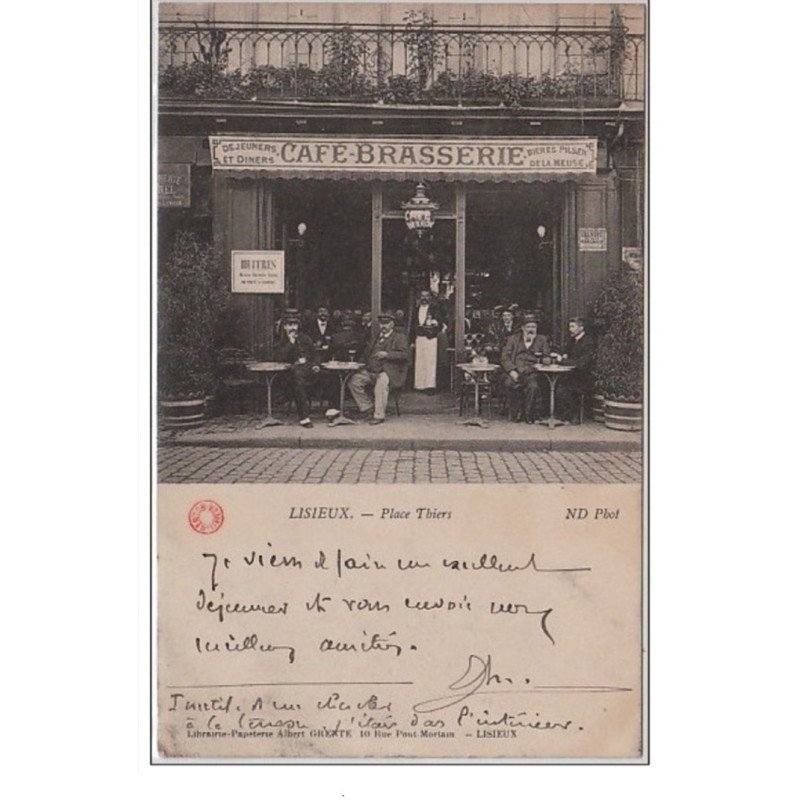 DEJEUNERS ET DINERS CAFÉ-BRASSERIE BIERES PILSEN DE LA MEUSE
HUITRES
LISIEUX. — Place Thiers ND Phot
Je viens de faire un excellent
déjeuner et vous envoie mes
meilleures amitiés.
Inutile de me chercher
à la terrasse, j'étais dans l'intérieur.
Librairie-Papeterie Albert GRENTE 10 Rue Pont-Mortain — LISIEUX